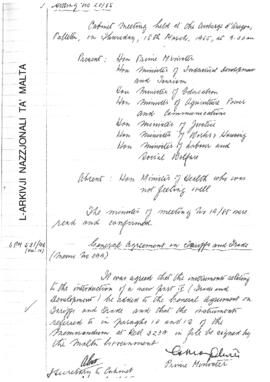 Meeting No 21/65
Cabinet Meeting held at the Auberge d'Aragon,
Valletta, on Thursday, 18th March, 1965, at 9.00 am
Present: Hon Prime Minister
Hon Minister of Industrial Development
and Tourism
Hon Minister of Education
Hon Minister of Agriculture Power
and Communications
Hon Minister of Justice
Hon Minister of Works & Housing
Hon Minister of Labour and
Social Welfare
Absent: Hon Minister of Health who was
not feeling well
The minutes of meeting No were
read and confirmed.
General Agreement on Tariffs and Trade
(Memo No
It was agreed that the instruments relating
to the introduction of a new part (Trade and
Development) be added to the General Agreement on
Tariffs and Trade and that the instruments
referred to in paraghs 10 and 12 of the
Memorandum at Red in file be signed by
the Malta Government
Secretary to Cabinet
Prime Minister
L-ARKIVJI NAZZJONALI TA' MALTA